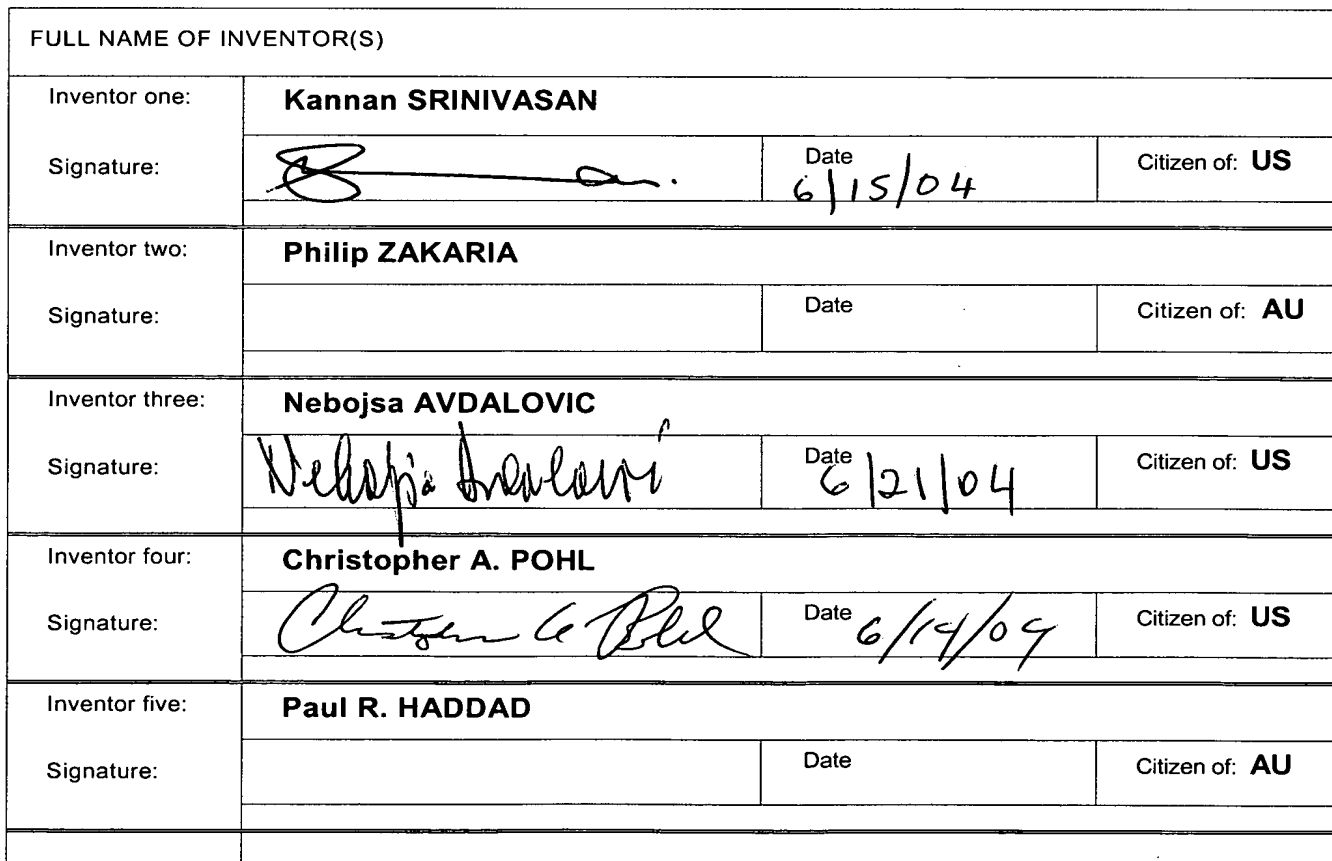 FULL NAME OF INVENTOR(S)
Inventor one: Kannan SRINIVASAN
Signature: Date 6/15/04 Citizen of: US
Inventor two: Philip ZAKARIA
Signature: Date Citizen of: AU
Inventor three: Nebojsa AVDALOVIC
Signature: Nebojsa Avdalovic Date 6/21/04 Citizen of: US
Inventor four: Christopher A. POHL
Signature: Christopher A Pohl Date 6/14/04 Citizen of: US
Inventor five: Paul R. HADDAD
Signature: Date Citizen of: AU